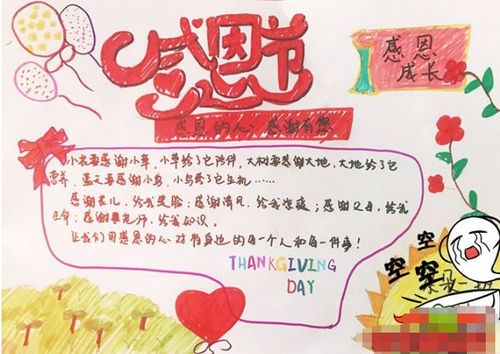 感恩节
感恩的心，感谢有您
感恩
成长
小花要感谢小草，小草给了它陪伴，大树要感谢大地，大地给了它
营养，蓝天要感谢小鸟，小鸟给了它生机……
感谢花儿，给我笑脸；感谢清风，给我凉爽；感谢父母，给我
生命；感谢老师，给我知识。
让我们用感恩的心对待身边的每一个人和每一件事！
THANKGIVING
DAY
空
空
突